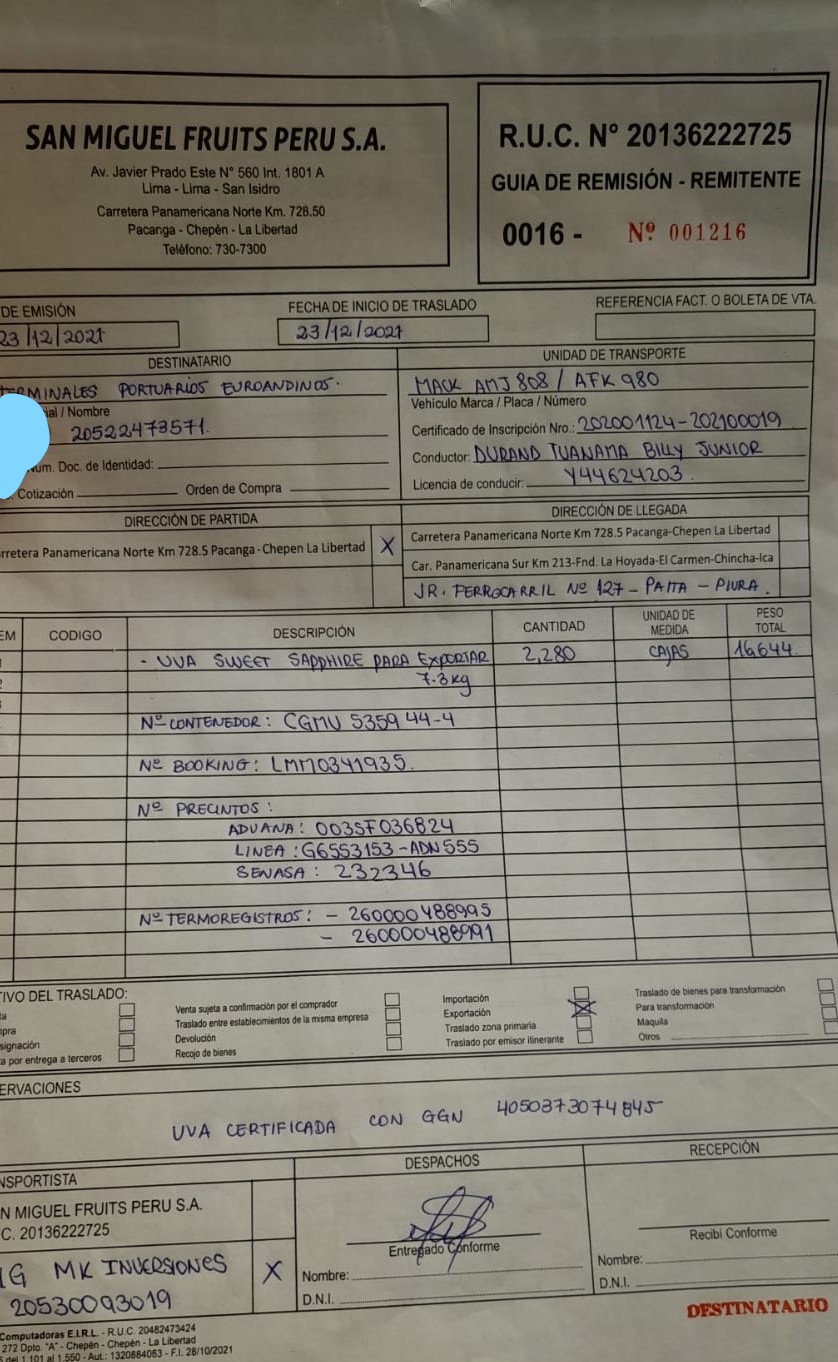 SAN MIGUEL FRUITS PERU S.A.
Av. Javier Prado Este N° 560 Int. 1801 A
Lima - Lima - San Isidro
Carretera Panamericana Norte Km. 728.50
Pacanga - Chepén - La Libertad
Teléfono: 730-7300
R.U.C. N° 20136222725
GUIA DE REMISIÓN - REMITENTE
0016 - Nº 001216
DE EMISIÓN
23/12/2021
FECHA DE INICIO DE TRASLADO
23/12/2021
REFERENCIA FACT. O BOLETA DE VTA.
DESTINATARIO
TERMINALES PORTUARIOS EUROANDINOS.
ial / Nombre
20522473571.
Num. Doc. de Identidad:
Cotización Orden de Compra
UNIDAD DE TRANSPORTE
MACK AMJ 808 / AFK 980
Vehículo Marca / Placa / Número
Certificado de Inscripción Nro.: 202001124-202100019
Conductor: DURAND TUANAMA BILLY JUNIOR
Licencia de conducir: Y44624203.
DIRECCIÓN DE PARTIDA
rretera Panamericana Norte Km 728.5 Pacanga-Chepen La Libertad X
DIRECCIÓN DE LLEGADA
Carretera Panamericana Norte Km 728.5 Pacanga-Chepen La Libertad
Car. Panamericana Sur Km 213-Fnd. La Hoyada-El Carmen-Chincha-Ica
JR. FERROCARRIL Nº 127 - PAITA - PIURA.
EM CODIGO DESCRIPCIÓN CANTIDAD UNIDAD DE MEDIDA PESO TOTAL
- UVA SWEET SAPPHIRE PARA EXPORTAR 2,280 CAJAS 16,644.
7.3 kg
Nº CONTENEDOR: CGMU 535944-4
Nº BOOKING: LMM0341935.
Nº PRECINTOS:
ADUANA: 003SF036824
LINEA: G6553153-ADN555
SENASA: 232346
Nº TERMOREGISTROS: - 260000488995
- 260000488991
TIVO DEL TRASLADO:
ta
mpra
signación
ta por entrega a terceros
Venta sujeta a confirmación por el comprador
Traslado entre establecimientos de la misma empresa
Devolución
Recojo de bienes
Importación
Exportación X
Traslado zona primaria
Traslado por emisor itinerante
Traslado de bienes para transformación
Para transformación
Maquila
Otros
ERVACIONES
UVA CERTIFICADA CON GGN 4050373074845
NSPORTISTA
N MIGUEL FRUITS PERU S.A.
C. 20136222725
MK INVERSIONES X
20530093019
DESPACHOS
Entregado Conforme
Nombre:
D.N.I.
RECEPCIÓN
Recibí Conforme
Nombre:
D.N.I.
DESTINATARIO
Computadoras E.I.R.L. - R.U.C. 20482473424
272 Dpto. "A" - Chepén - Chepén - La Libertad
del 1,101 al 1,550 - Aut.: 1320884063 - F.I. 28/10/2021